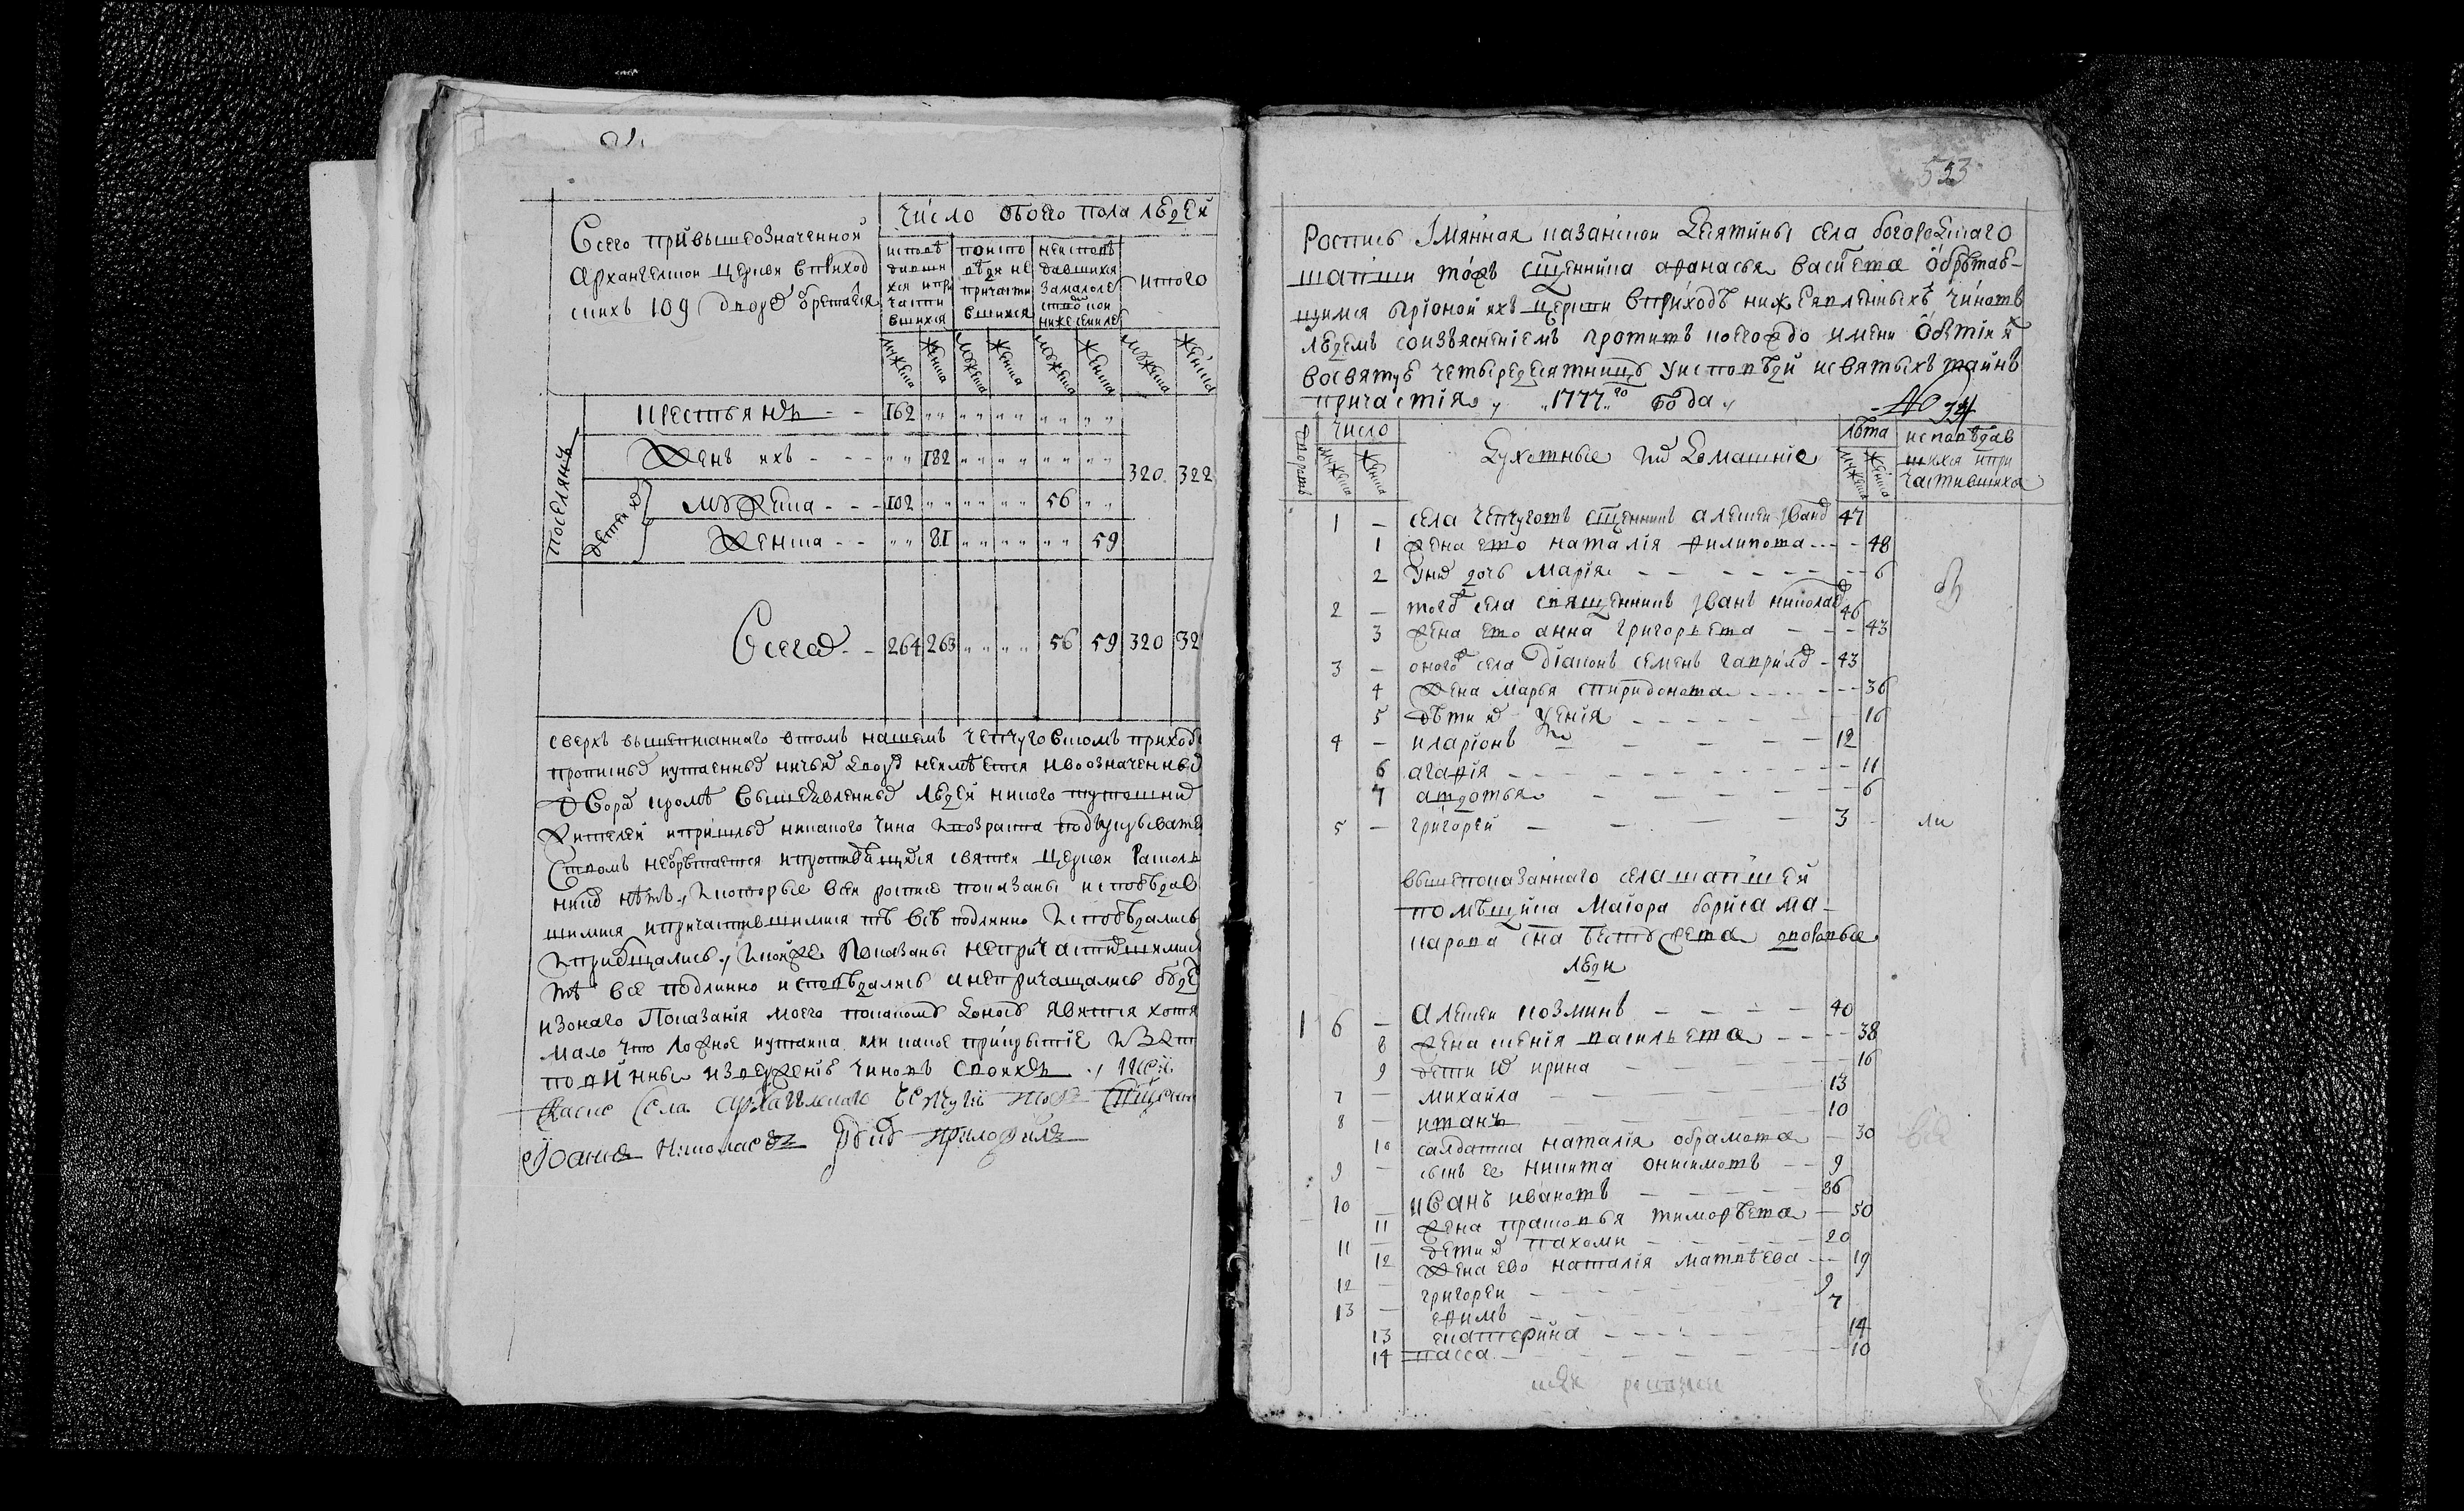 Всего при вышеозначенной
Архангелской церкви в приход
скихъ 109 дворе обретается
число обоего пола людей
исповѣ
давши
хся и при
части
вшихся
по испо
вѣди не
причасти
вшихся
не исповѣ
давшихся
за малоле
тствомъ
итого
мужеска
женска
мужеска
женска
мужеска
женска
мужеска
женска
поселянъ
крестьянъ 162
женъ ихъ 182
320 322
детей
мужеска 102 56
женска 81 59
Всего 264 263 56 59 320 32
сверхъ вышеписаннаго в томъ нашемъ чепчуговскомъ приход
прописных и утаенных ничьих дворов неимѣется и во означенных
дворах кромѣ вышеявленных людей никого тутошних
жителей и пришлых никакого чина и возраста
необретается и противящихся святей церкви расколь
никовъ нѣтъ, и которые в сей росписе показаны исповѣдав
шимися и причастившимися тѣ всѣ подлинно исповѣдались
и приобщались, и кои же показаны непричастившимися
тѣ все подлинно исповѣдались и непричащались
из онаго показанія моего по какому доносу явится хотя
мало что ложное и утайка или какое прикрытіе и
повинны извержению чиновъ своихъ
села архангелскаго
Иоаннъ Николаевъ руку приложилъ
533
Роспись Імянная казанской десятины села богородскаго
шапши тожъ священника афанасья васильева обретаю
щимся при оной ихъ церкви в приходѣ нижеявленныхъ чиновъ
людемъ со изъясненіемъ противъ коегождо имени о бытіи их
во святую четыредесятницу у исповѣди и святыхъ таинъ
причастія 1777 го года
число
мужеска
женска
Духовные и их домашніе
лѣта
мужеска
женска
исповѣдав
шихся и при
частившихся
1 — села чепчуговъ священникъ алексей Iванов 47
1 жена ево наталія филипова 48
2 у них дочь марія 6
2 — того села священникъ Iванъ николаев 46
3 жена ево анна григорьева 43
3 — оного села діаконъ семенъ гаврилов 43
4 жена марья спиридонова 36
5 дѣти их 16
4 — иларіонъ 12
6 агафія 11
7 авдотья 6
5 — григорей 3
вышепоказаннаго села шапшей
помѣщика маіора бориса ма-
карова сна дворовые
люди
1 6 — алексей козминъ 40
8 жена ксенія васильева 38
9 дети их ирина 16
7 — михайла 13
8 — иванъ 10
10 салдатка наталія абрамова 30
9 — сынъ ее никита онисимовъ 9
10 — иванъ ивановъ 86
11 жена прасковья тимофѣева 50
11 — дети их пахоми 20
12 жена ево наталія матвѣева 19
12 — григорей 9
13 — ефимъ 7
13 екатерина 14
14 васса 10